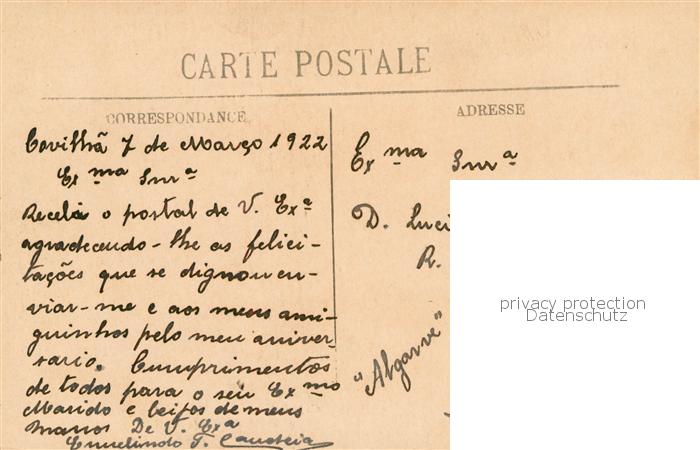 CARTE POSTALE
CORRESPONDANCE
Covilhã 7 de Março 1922
Exma Snra
Recebi o postal de V. Exa
agradecendo-lhe as felici-
tações que se dignou en-
viar-me e aos meus ami-
guinhos pelo meu aniver-
sario. Cumprimentos
de todos para o seu Exmo
Marido e beijos de meus
manos De V. Exa
T.
ADRESSE
Exma Snra
D. Luci
R.
"Algarve"
privacy protection
Datenschutz